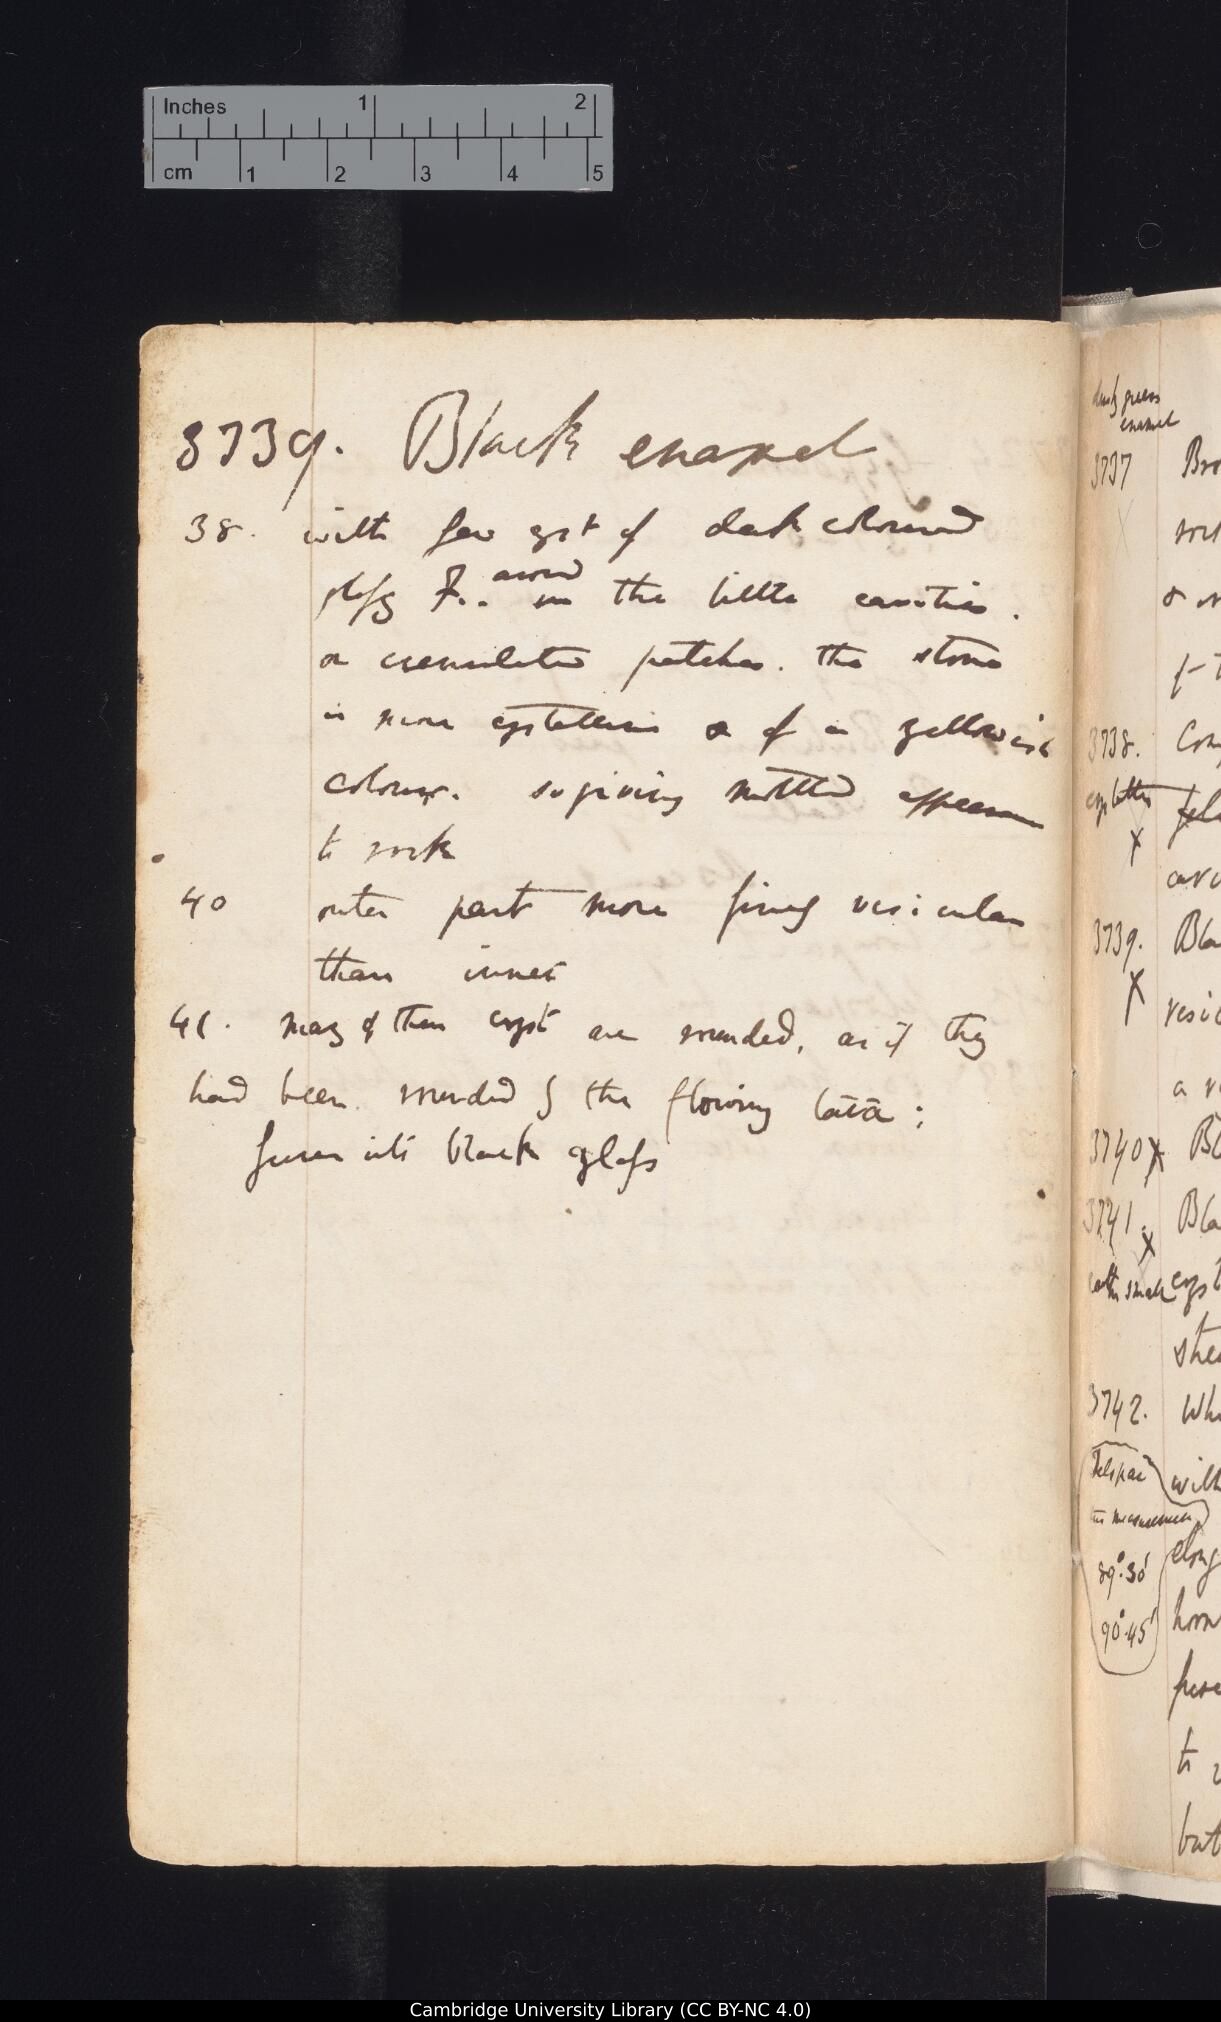 Inches 1 2
cm 1 2 3 4 5
3739. Black enamel
38. with few cryst of dark coloured
glassy F.. around in the little cavities.
or crenulated patches. The stone
is more crystalline & of a yellowish
colour. so giving mottled appearance
to rock
40 outer part more finely vesicular
than inner
41. many of them cryst are rounded, as if they
had been rounded by the flowing lava;
fuses into black glass
dusky green
enamel
3737 Bro
3738. Con
3739. Bla
vesic
a
3740 x Bl
3741 x Bla
with small cryst
3742. Wh
Felspar with
measurement
89°.30' elong
90°.45' horn
fuse
to
but
Cambridge University Library (CC BY-NC 4.0)